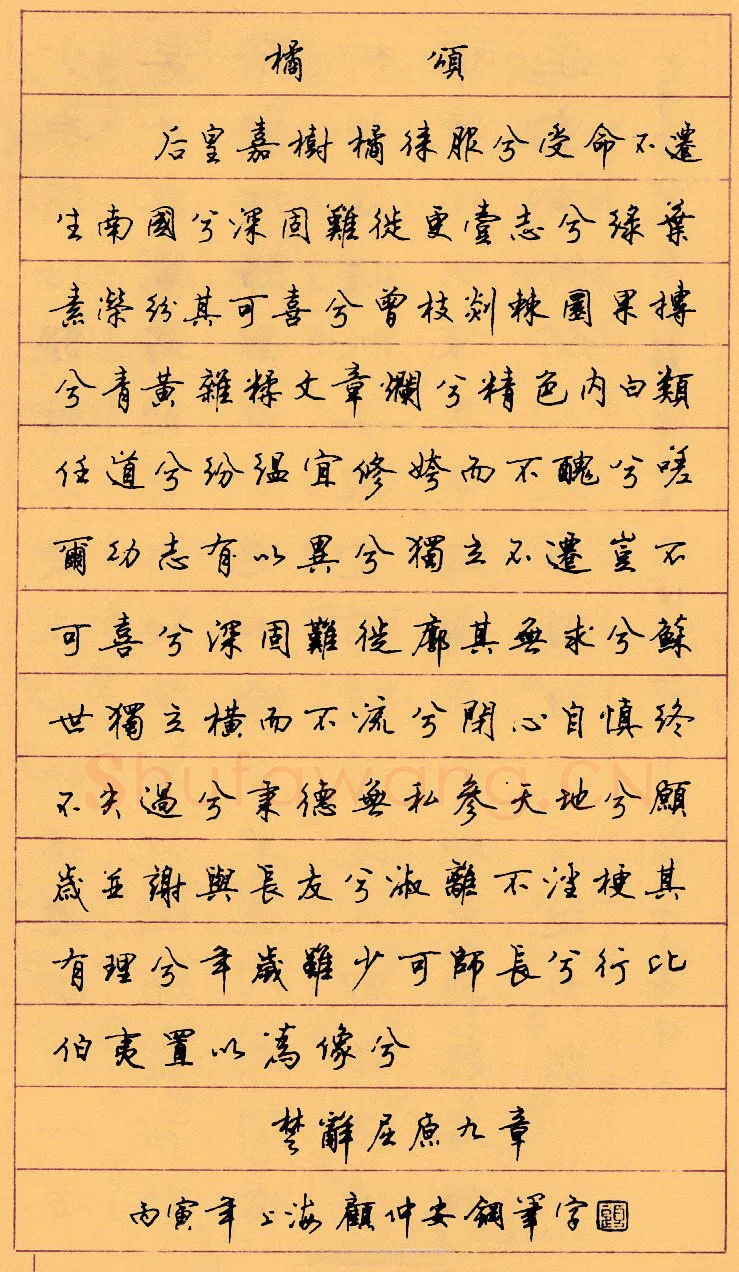 橘頌
后皇嘉樹橘徠服兮受命不遷
生南國兮深固難徙更壹志兮綠葉
素榮紛其可喜兮曾枝剡棘圜果摶
兮青黃雜糅文章爛兮精色內白類
任道兮紛緼宜修姱而不醜兮嗟
爾幼志有以異兮獨立不遷豈不
可喜兮深固難徙廓其無求兮蘇
世獨立橫而不流兮閉心自慎終
不失過兮秉德無私參天地兮願
歲並謝與長友兮淑離不淫梗其
有理兮年歲雖少可師長兮行比
伯夷置以為像兮
楚辭屈原九章
丙寅年上海顧仲安鋼筆字
Shufawang.CN